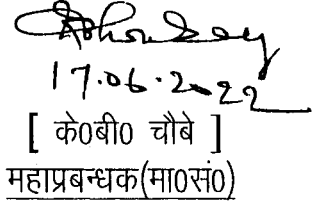 17.06.2022
[ के0बी0 चौबे ]
महाप्रबन्धक(मा0सं0)